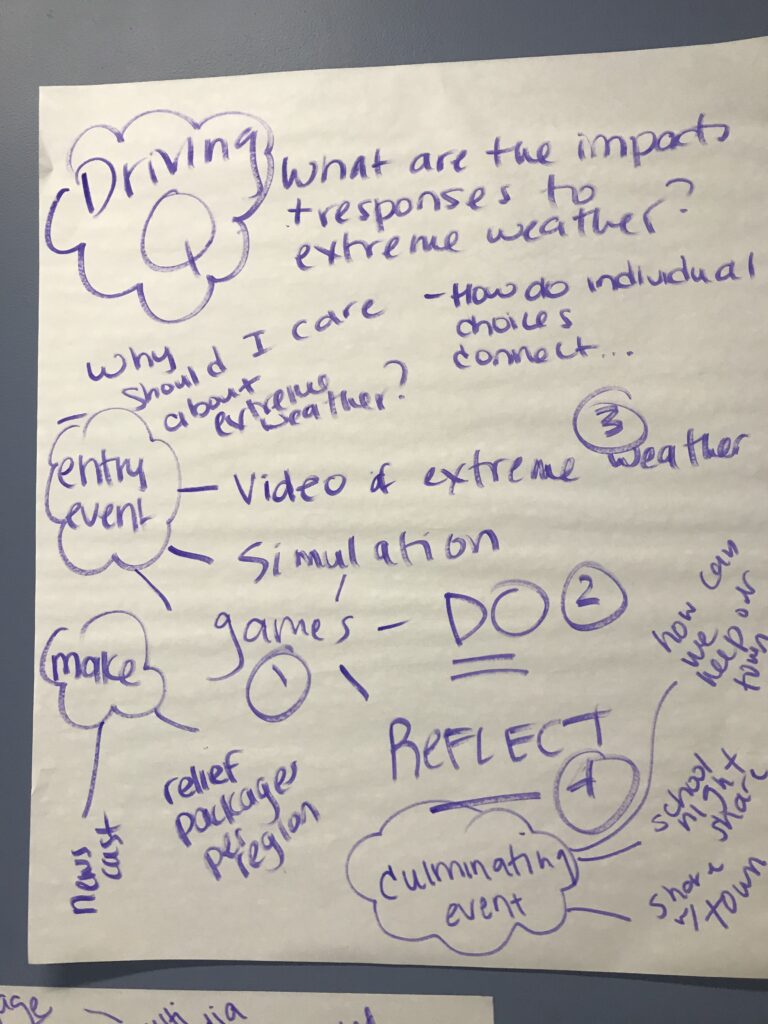 Driving
Q
What are the impacts
+ responses to
extreme weather?
- Why
should I care
about
extreme
weather?
- How do individual
choices
connect...
entry
event
- Video of extreme weather
3
Simulation
games - DO
2
1
make
REFLECT
4
relief
packages
per
region
news
cast
culminating
event
how can
we
keep our
town
school
night
share
share
w/ town
age